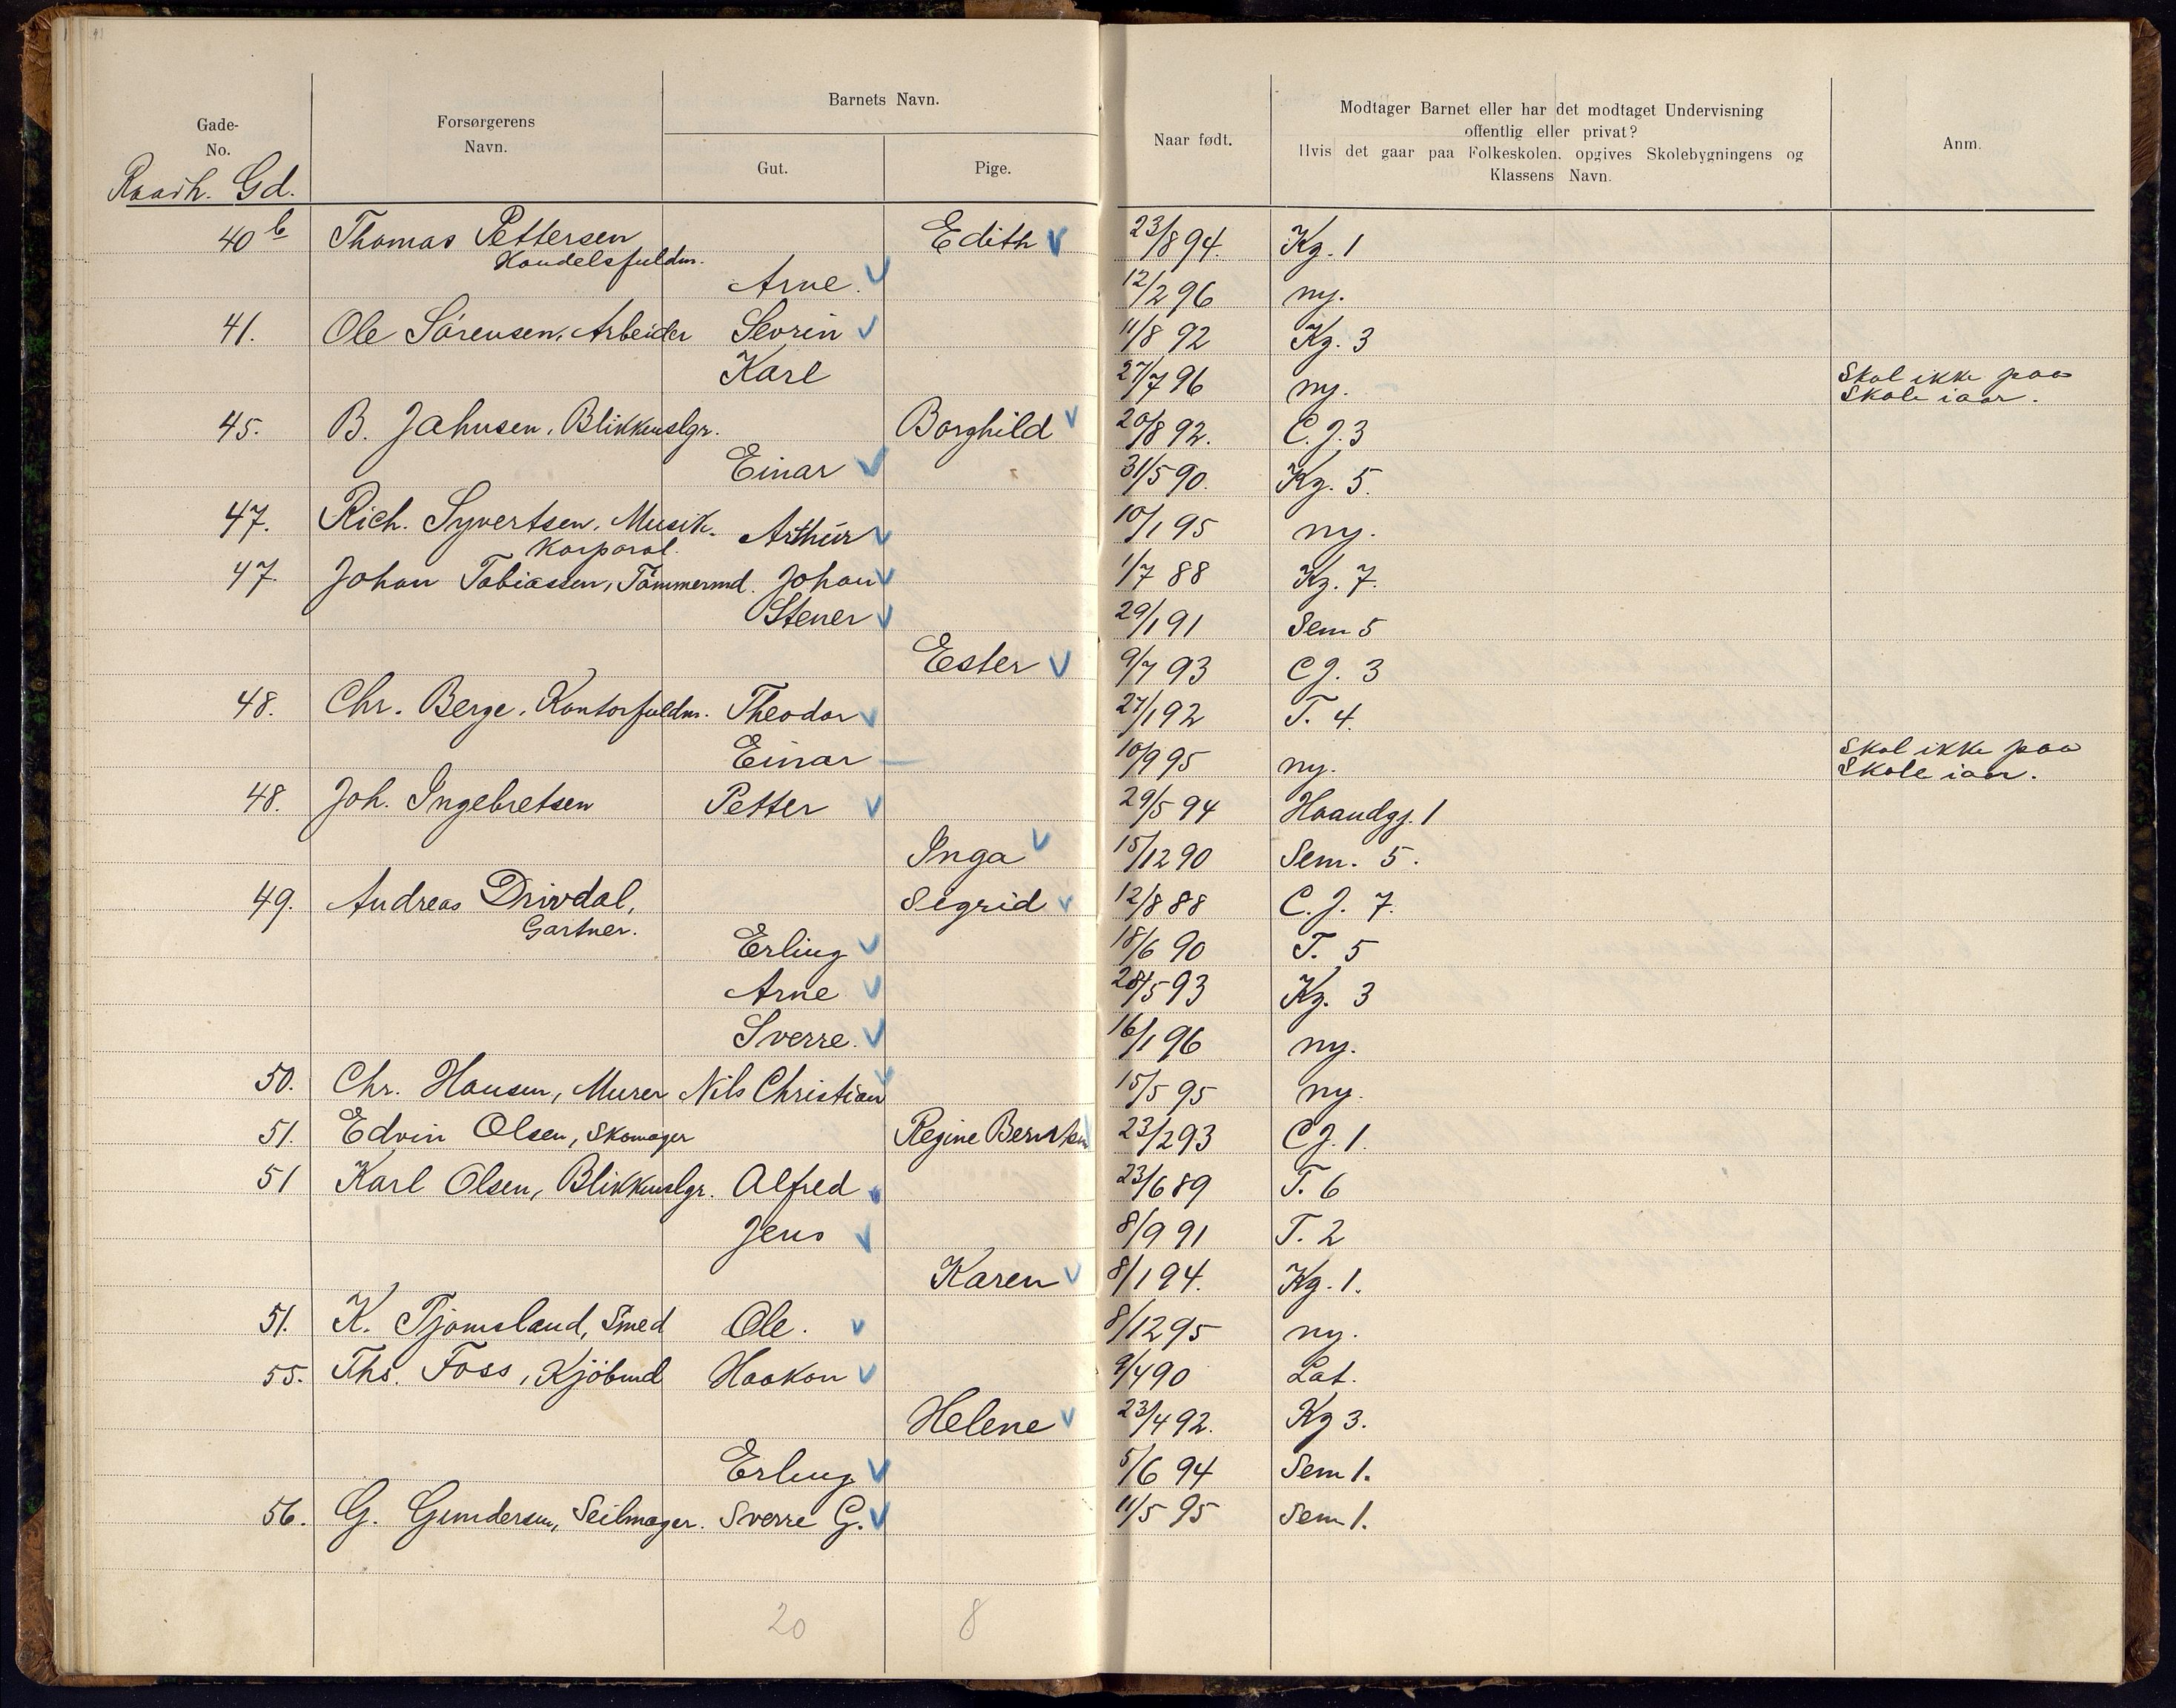 Gade-
No.
Forsørgerens
Navn.
Barnets Navn.
Gut.
Pige.
Naar født.
Modtager Barnet eller har det modtaget Undervisning
offentlig eller privat?
Hvis det gaar paa Folkeskolen, opgives Skolebygningens og
Klassens Navn.
Anm.
Raadh. Gd.
40 b Thomas Pettersen Edith 23/8 94. Kg. 1
Handelsfuldm.
Arne. 12/2 96 ny.
41. Ole Sörensen, Arbeider Sevrin 11/8 92 Kg. 3
Karl 27/7 96 ny. Skal ikke paa
Skole iaar.
45. B. Jahnsen, Blikkenslgr. Borghild 20/8 92. C. J. 3
Einar 31/5 90. Kg. 5.
47. Rich. Syvertsen, Musik- Arthur 10/1 95 ny.
Korporal.
47. Johan Tobiassen, Tömmermd. Johan 1/7 88 Kg. 7.
Stener 29/1 91 Sem 5
Ester 9/7 93 C J. 3
48. Chr. Berge, Kontorfuldm. Theodor 27/1 92 T. 4.
Einar 10/9 95 ny. Skal ikke paa
Skole iaar.
48. Joh. Ingebretsen Petter 29/5 94 Haandgj. 1
Inga 15/12 90 Sem. 5.
49. Andreas Drivdal, Sigrid 12/8 88 C. J. 7.
Gartner.
Erling 18/6 90 T. 5
Arne 28/5 93 Kg. 3
Sverre. 16/1 96 ny.
50. Chr. Hansen, Murer Nils Christian 15/5 95 ny.
51. Edvin Olsen, Skomager Regine 23/2 93 C J. 1.
51 Karl Olsen, Blikkenslgr. Alfred 23/6 89 T. 6
Jens 8/9 91 T. 2
Karen 8/1 94. Kg. 1.
51. K. Tjomsland, Smed Ole. 8/12 95 ny.
55. Ths. Foss, Kjöbmd Haakon 9/4 90 Lat.
Helene 23/4 92. Kg 3.
Erling 5/6 94 Sem 1.
56. G. Gundersen, Seilmager. Sverre G. 11/5 95 Sem 1.
20 8